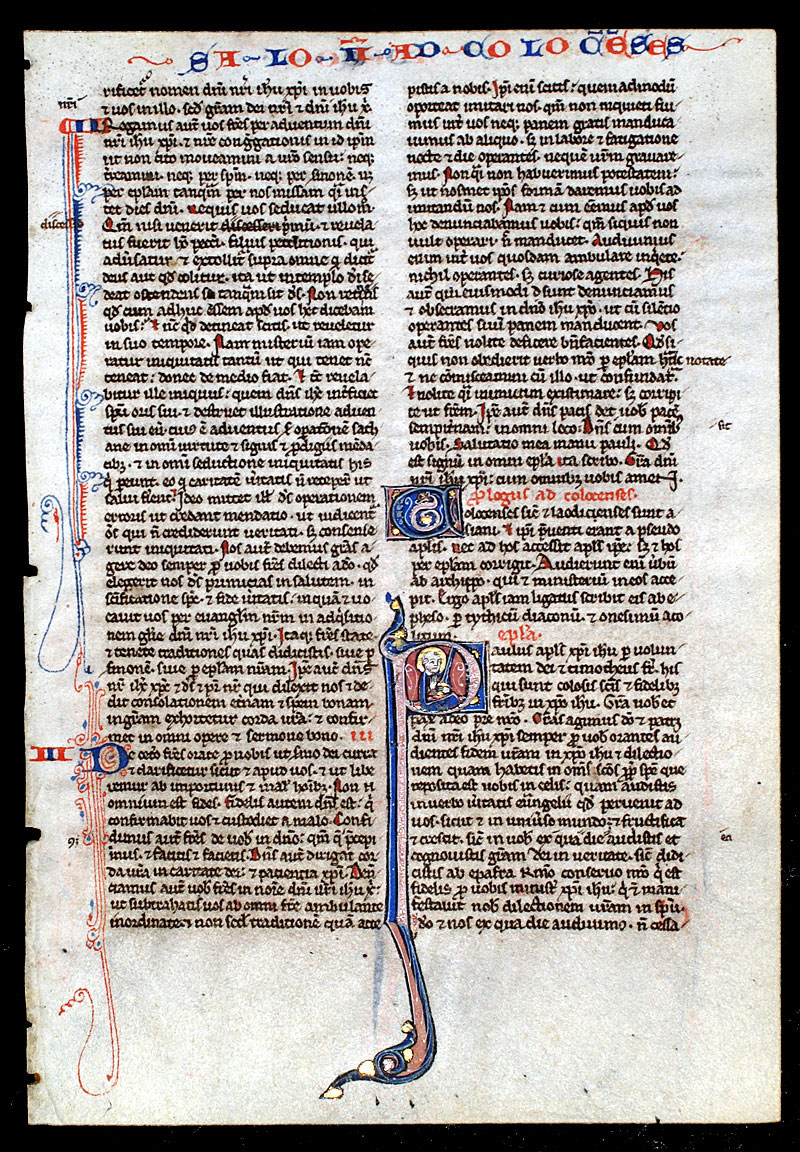 SA·LO·II·AD COLOCE̅SES
rificet᷑ nomen dn̅i nr̅i ih̅u xp̅i in uobis
& uos in illo. scd̅m gr̅am dei nr̅i & dn̅i ih̅u x̅
nr̅i
Rogamus aut̅ uos fr̅es per aduentum dn̅i
nr̅i ih̅u xp̅i. & nr̅e congregationis in id ip̅m
ut non cito moueamini a ur̅o sensu: neq;
t̅reamini. neq; per sp̅m. neq; per sermone̅. uꝫ
per epl̅am tanq̅m per nos missam q̅i ins-
tet dies dn̅i. Nequis uos seducat ullo m̅.
Q̅m nisi uenerit discessio primu̅. & reuela-
discessio
tus fuerit ho̅ pecc̅i. filius perditionis. qui
aduersatur & extollit᷑ supra omne q̅ dicit᷑
deus aut qd̅ colitur. ita ut in templo di̅ se-
deat ostendens se tanq̅m sit ds̅. Non retinetis
qd̅ cum adhuc e̅ssem apud uos hec dicebam
uobis: & nu̅c qd̅ detineat scitis. ut reueletur
in suo tempore. Nam misteriu̅ iam ope-
ratur iniquitatis. tantu̅ ut qui tenet nu̅c
teneat: donec de medio fiat. & tu̅c reuela-
bitur ille iniquus: quem dn̅s ih̅c int̅ficiet
spu̅ oris sui. & destruet illustratione aduen-
tus sui eu̅. cuius e̅ aduentus s̅ op̅atione̅ sath-
ane in omni uirtute & signis & prodigiis menda-
cibꝫ. & in omni seductione iniquitatis his
q̅ pereunt. eo q̅ caritate̅ u̅itatis n̅ recep̅er̅ ut
salui fierent. Ideo mittet ill̅ ds̅ operationem
erroris ut credant mendatio. ut iudicent᷑
o̅s qui n̅ crediderunt ueritati. sꝫ consense-
runt iniquitati. Nos aut̅ debemus gr̅as a-
gere deo semper ꝑ uobis fr̅es dilecti a do̅. qd̅
elegerit nos ds̅ primicias in salutem. in
sc̅ificatione sp̅c & fide u̅itatis: in qua & uo-
cauit uos per euanglm̅ nr̅m in adq̅sitio-
nem gl̅ie dn̅i nr̅i ih̅u xp̅i. Itaq; fr̅es state.
& tenete traditiones quas didicistis. siue ꝑ
sermone̅. siue ꝑ epl̅am nr̅am. Ip̅e aut̅ dn̅s
nr̅ ih̅c xp̅c & ds̅ & pr̅ nr̅ qui dilexit nos & de-
dit consolationem et̅nam & spem bonam
in gr̅am exhortetur corda ur̅a: & confir-
met in omni opere & sermone bono. III
III De cet̅o fr̅es orate ꝑ nobis ut sermo dei currat
& clarificetur sicut & apud uos. & ut libe-
remur ab importunis & malis ho̅ibꝫ. Non n̅
omnium est fides. fidelis autem dn̅s est: q̅
confirmabit uos & custodiet a malo. Confi-
dimus aut̅ fr̅es de uob̅ in dn̅o: qm̅ que̅ precepi
9i
mus. & facitis & facietis. Dn̅s aut̅ dirigat cor-
da ur̅a in caritate dei: & patientia xp̅i. Denu̅-
ciamus aut̅ uob̅ fr̅es in no̅ie dn̅i nr̅i ih̅u x̅:
ut subtrahatis uos ab omni fr̅e ambulante
inordinate: & non scd̅ traditione̅ qua̅ acce-
pistis a nobis. Ip̅i eni̅ scitis: quemadmodu̅
oporteat imitari nos. qm̅ non inquieti fui-
mus int̅ uos neq; panem gratis manduca-
uimus ab aliquo. sꝫ in labore & fatigatione
nocte & die operantes. neque̅ ur̅m grauare-
mus. Non q̅i non habuerimus potestatem:
sꝫ ut nosmet ip̅os forma̅ daremus uobis ad
imitandu̅ nos. Nam & cum e̅emus apd̅ uos
hec denunciabamus uobis: qm̅ siquis non
uult operari n̅ manducet. Audiuimus
enim int̅ uos quosdam ambulare inq̅ete.
nichil operantes. sꝫ curiose agentes. His
aut̅ qui eiusmodi s̅unt denunciamus
& obsecramus in dn̅o ih̅u xp̅o. ut cu̅ sile̅tio
operantes suu̅ panem manducent. Uos
aut̅ fr̅es nolite deficere bn̅facientes. Qd̅ si-
quis non obedierit uerbo nr̅o ꝑ epl̅am hunc notate
& ne co̅misceamini cu̅ illo. ut confundat᷑.
& nolite q̅i inimicum existimare: sꝫ corripi-
te ut fr̅em. Ip̅e aut̅ dn̅s pacis det uob̅ pace̅
sempit̅nam: in omni loco. Dn̅s cum omibꝫ
sit
uobis. Salutatio mea manu pauli. Qd̅
est signu̅ in omni epl̅a ita scribo. Gr̅a dn̅i
nr̅i ih̅u xp̅i cum omnibꝫ uobis ame̅.
Prologus ad colocenses.
Colocenses sic̅ & laodicienses sunt a-
siani. & ip̅i preuenti erant a pseudo
aplis. nec ad hos accessit apl̅s ip̅e: sꝫ & hos
per epl̅am corrigit. Audierunt eni̅ u̅bu̅
ab archippo. qui & ministeriu̅ in eos acce-
pit. Ergo apl̅s iam ligatus scribit eis ab e-
pheso. ꝑ tythicu̅ diaconu̅. & onesimu̅ aco-
litum. epl̅a.
Paulus apl̅s xp̅i ih̅u ꝑ uolun-
tatem dei & timotheus fr̅. his
qui sunt colosis sc̅is & fidelibꝫ
fr̅ibꝫ in xp̅o ih̅u. Gr̅a uob̅ et
pax a deo pr̅e nr̅o. Gr̅as agimus do̅ & patri
dn̅i nr̅i ih̅u xp̅i semper ꝑ uob̅ orantes au-
dientes fidem ur̅am in xp̅o ih̅u & dilectio-
nem quam habetis in om̅s sc̅os ꝓp̅ spe̅ que
reposita est uobis in celis: quam audistis
in uerbo u̅itatis eu̅ngelii qd̅ peruenit ad
uos. sicut & in uniuerso mundo: & fructificat
& crescit. sic̅ in uob̅ ex qua die audistis et
en
cognouistis gr̅am dei in ueritate. sic̅ didi-
cistis ab epafra k̅mo conseruo nr̅o q̅ est
fidelis ꝑ uobis minist̅ xp̅i ih̅u: q̅ & mani-
festauit nob̅ dilectionem ur̅am in spu̅.
Ideo & nos ex qua die audiuimus. n̅ cessa-